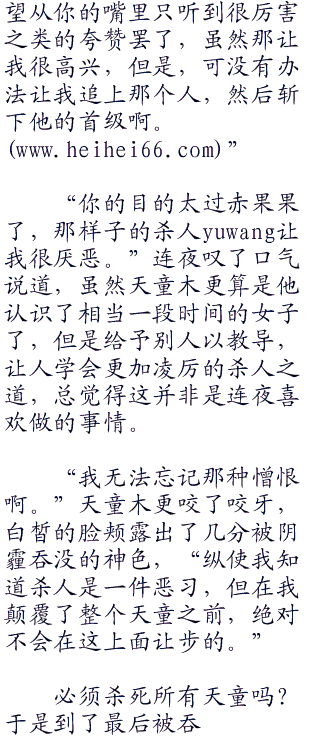 望从你的嘴里只听到很厉害
之类的夸赞罢了，虽然那让
我很高兴，但是，可没有办
法让我追上那个人，然后斩
下他的首级啊。
(www.heihei66.com)”
“你的目的太过赤果果
了，那样子的杀人yuwang让
我很厌恶。”连夜叹了口气
说道，虽然天童木更算是他
认识了相当一段时间的女子
了，但是给予别人以教导，
让人学会更加凌厉的杀人之
道，总觉得这并非是连夜喜
欢做的事情。
“我无法忘记那种憎恨
啊。”天童木更咬了咬牙，
白皙的脸颊露出了几分被阴
霾吞没的神色，“纵使我知
道杀人是一件恶习，但在我
颠覆了整个天童之前，绝对
不会在这上面让步的。”
必须杀死所有天童吗？
于是到了最后被吞